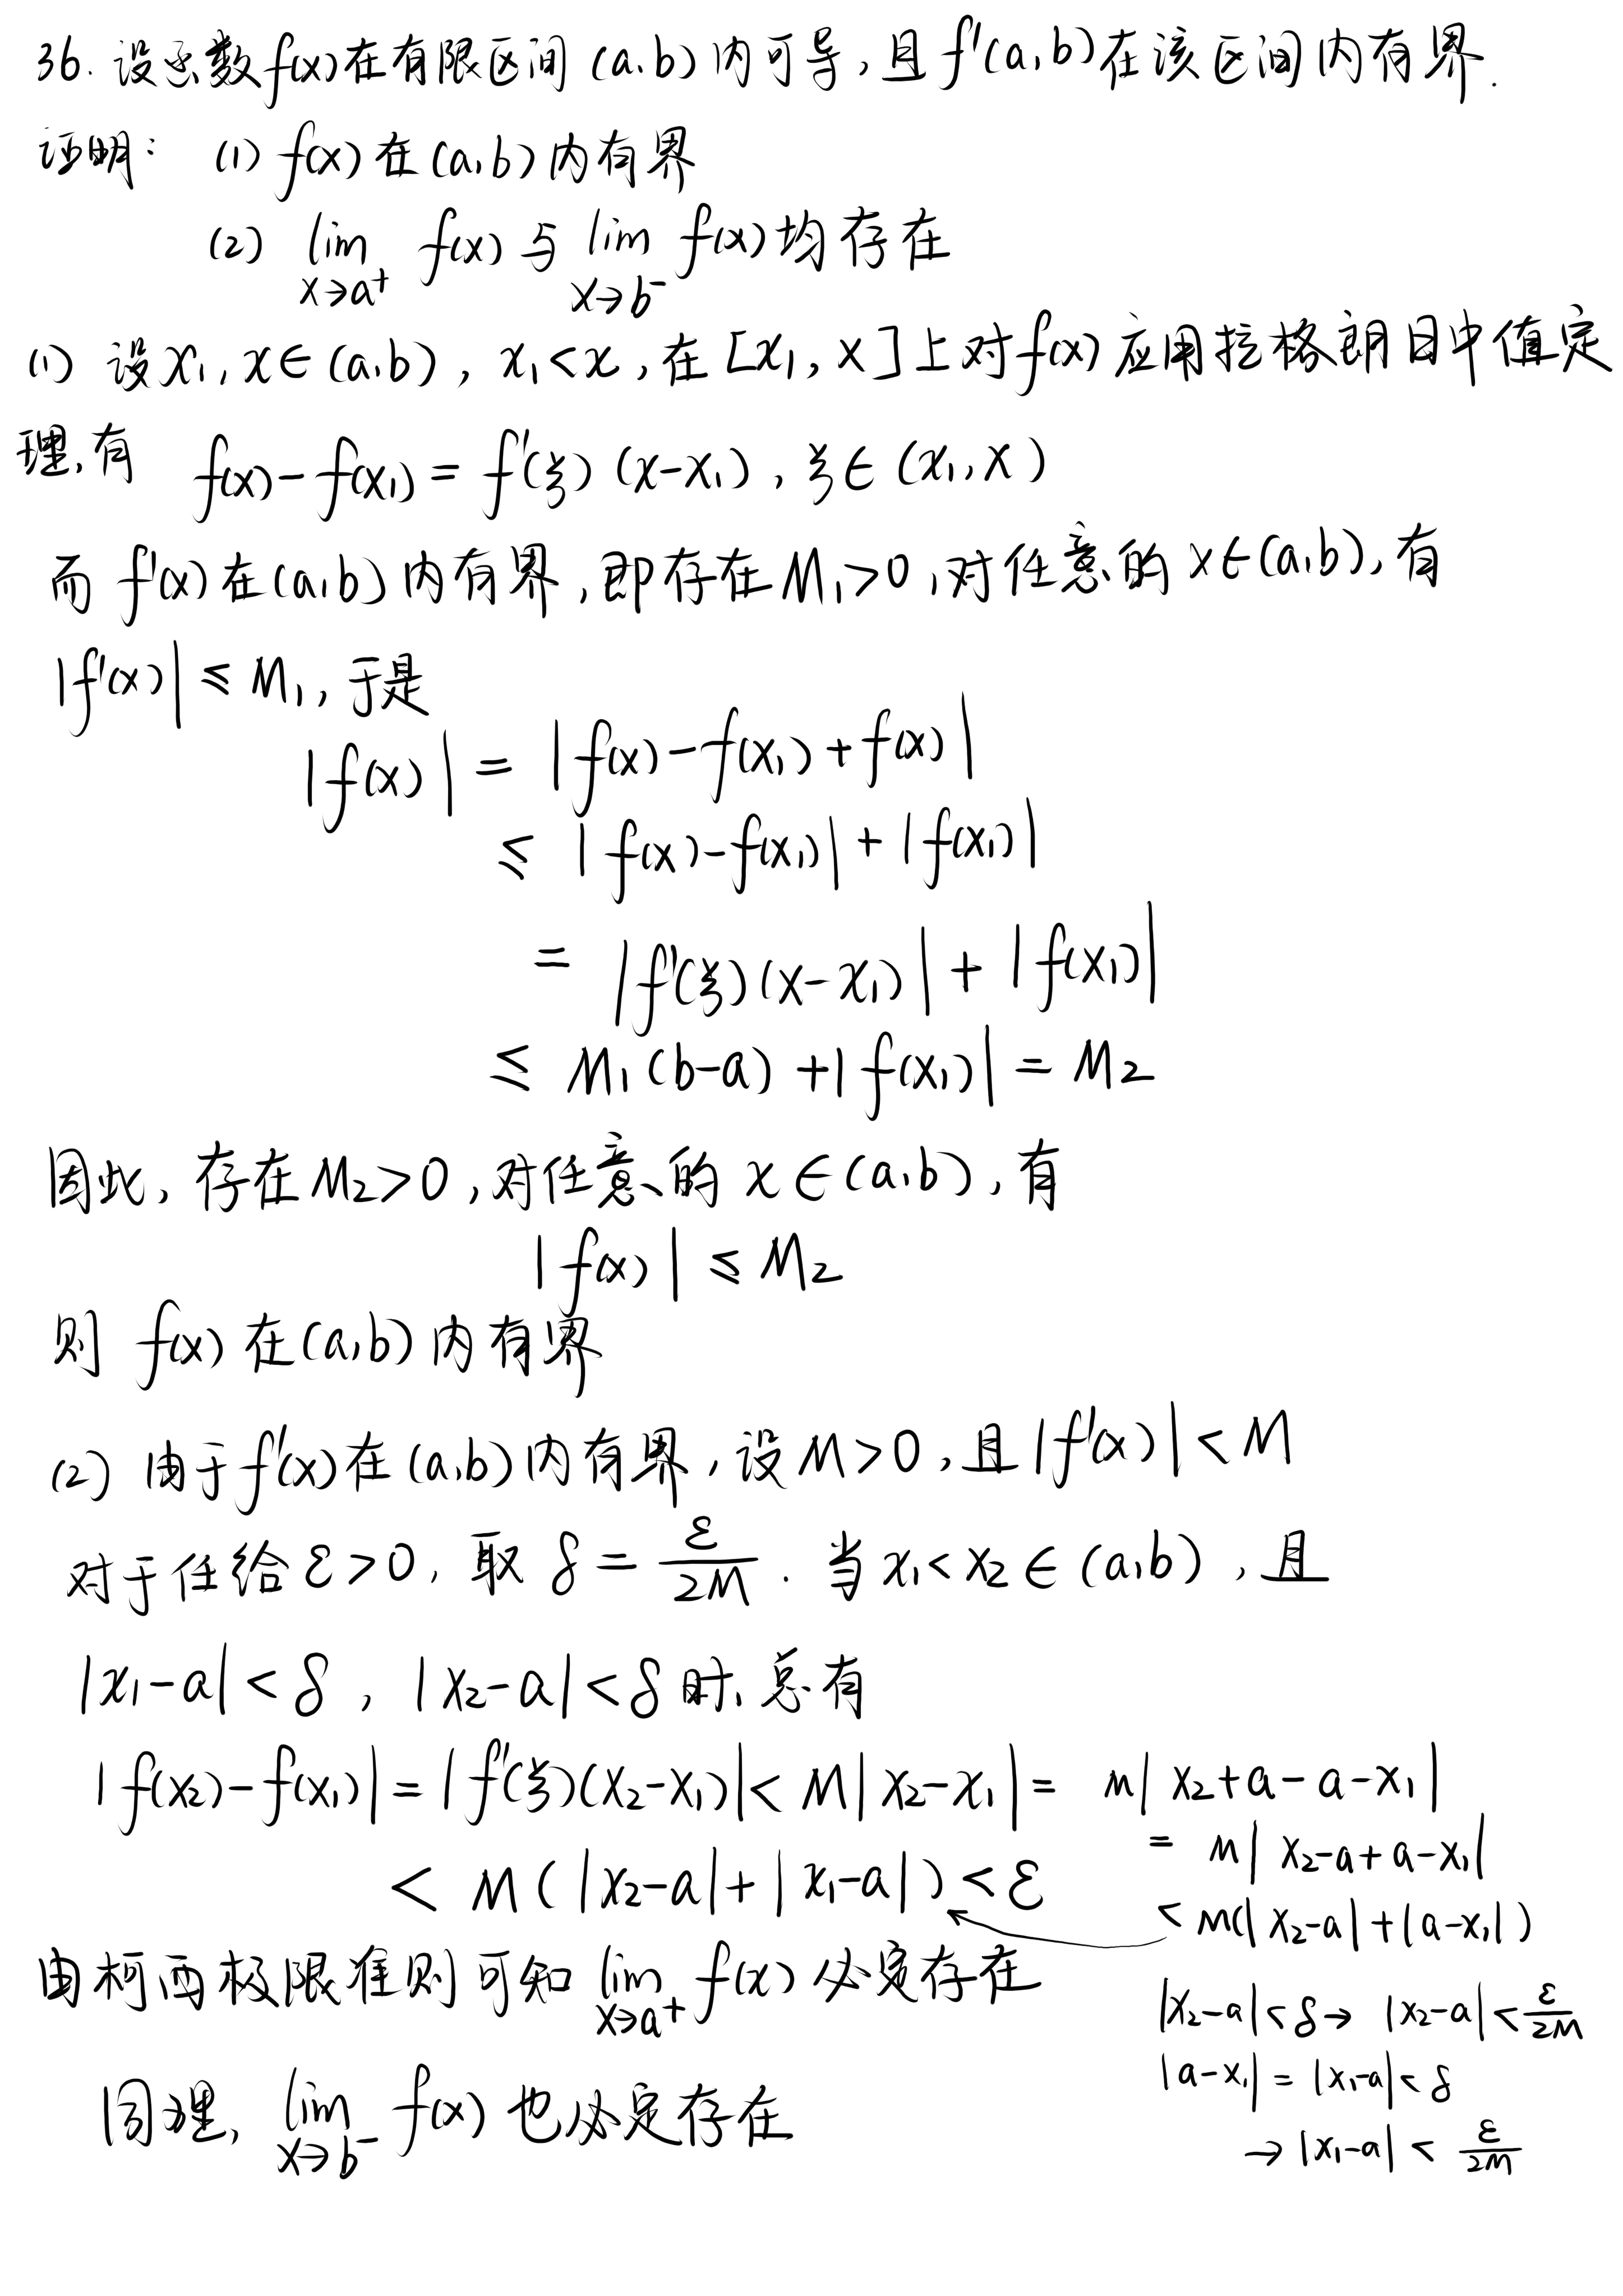 36. 设函数f(x)在有限区间(a,b)内可导,且f'(a,b)在该区间内有界.
证明: (1) f(x)在(a,b)内有界
(2) lim f(x)与lim f(x)均存在
x→a⁺ x→b⁻
(1) 设x₁, x∈(a,b), x₁<x, 在[x₁, x]上对f(x)应用拉格朗日中值定
理,有 f(x)-f(x₁)=f'(ξ)(x-x₁), ξ∈(x₁,x)
而f'(x)在(a,b)内有界,即存在M₁>0,对任意的x∈(a,b),有
|f'(x)|≤M₁,于是
|f(x)|=|f(x)-f(x₁)+f(x)|
≤|f(x)-f(x₁)|+|f(x₁)|
=|f'(ξ)(x-x₁)|+|f(x₁)|
≤M₁(b-a)+|f(x₁)|=M₂
因此,存在M₂>0,对任意的x∈(a,b),有
|f(x)|≤M₂
则f(x)在(a,b)内有界
(2) 由于f'(x)在(a,b)内有界,设M>0,且|f'(x)|<M
对于任给ε>0,取δ=ε/2M.当x₁<x₂∈(a,b),且
|x₁-a|<δ, |x₂-a|<δ时,总有
|f(x₂)-f(x₁)|=|f'(ξ)(x₂-x₁)|<M|x₂-x₁|= M|x₂+a-a-x₁|
= M|x₂-a+a-x₁|
<M(|x₂-a|+|x₁-a|)<ε
<M(|x₂-a|+|a-x₁|)
由柯西极限准则可知lim f(x)必定存在
x→a⁺
|x₂-a|<δ→ |x₂-a|<ε/2M
|a-x₁|=|x₁-a|<δ
→|x₁-a|<ε/2M
同理,lim f(x)也必定存在
x→b⁻